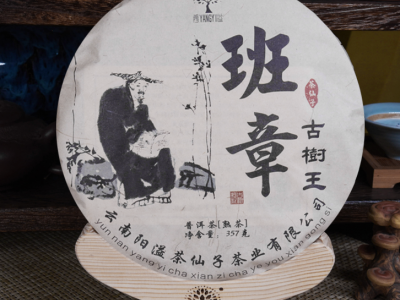 班章
古樹王
茶仙子
普洱茶[熟茶]
净含量:357克
云南阳溢茶仙子茶业有限公司
yun nan yang yi cha xian zi cha ye you xian gong si